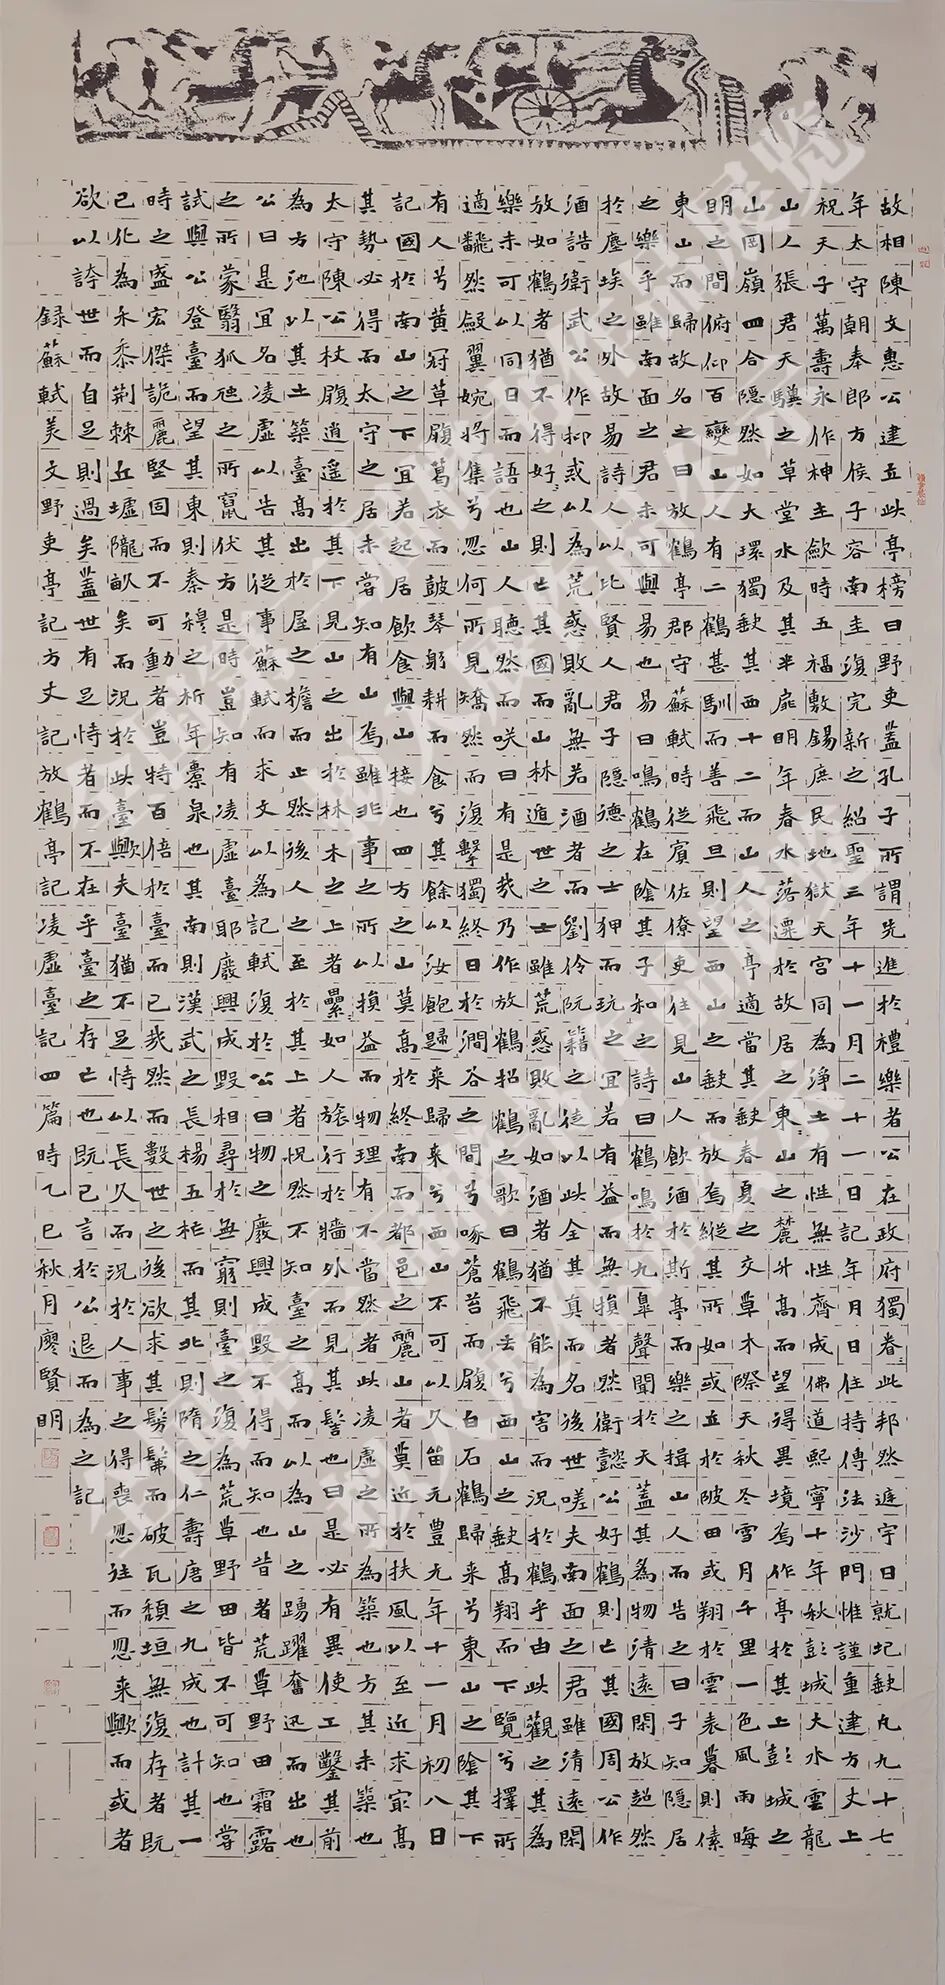 故相陳文惠公建立此亭榜曰野吏蓋孔子所謂先進於禮樂者公在政府獨眷此邦然遊宇日就圮缺凡九十七
年太守朝奉郎方侯子容南圭復完新之紹聖三年十一月二十一日記年月日住持傳法沙門惟謹重建方丈上
祝天子萬壽永作神主斂時五福敷錫庶民地獄天宮同為淨土有性無性齊成佛道熙寧十年秋彭城大水雲龍
山人張君天驥之草堂水及其半扉明年春水落遷於故居之東山之麓升高而望得異境焉作亭於其上彭城之
山岡嶺四合隱然如大環獨缺其西十二而山人之亭適當其缺春夏之交草木際天秋冬雪月千里一色風雨晦
明之間俯仰百變山人有二鶴甚馴而善飛旦則望西山之缺而放焉縱其所如或立於陂田或翔於雲表暮則傃
東山而歸故名之曰放鶴亭郡守蘇軾時從賓佐僚吏往見山人飲酒於斯亭而樂之揖山人而告之曰子知隱居
之樂乎雖南面之君未可與易也易曰鳴鶴在陰其子和之詩曰鶴鳴於九皋聲聞於天蓋其為物清遠閑放超然
於塵埃之外故易詩人以比賢人君子隱德之士狎而玩之宜若有益而無損者然衛懿公好鶴則亡其國周公作
酒誥衛武公作抑戒以為荒惑敗亂無若酒者而劉伶阮籍之徒以此全其真而名後世嗟夫南面之君雖清遠閑
放如鶴者猶不得好之則亡其國而山林遁世之士雖荒惑敗亂如酒者猶不能為害而況於鶴乎由此觀之其為
樂未可以同日而語也山人聽然而笑曰有是哉乃作放鶴招鶴之歌曰鶴飛去兮西山之缺高翔而下覽兮擇所
適翻然斂翼婉將集兮忽何所見矯然而復擊獨終日於澗谷之間兮啄蒼苔而履白石鶴歸來兮東山之陰其下
有人兮黃冠草履葛衣而鼓琴躬耕而食兮其餘以汝飽歸來歸來兮西山不可以久留元豐元年十一月初八日
記國於南山之下宜若起居飲食與山接也四方之山莫高於終南而都邑之麗山者莫近於扶風以至近求最高
其勢必得而太守之居未嘗知有山焉雖非事之所以損益而物理有不當然者此凌虛之所為築也方其未築也
太守陳公杖履逍遙於其下見山之出於林木之上者纍纍如人旅行於牆外而見其髻也曰是必有異使工鑿其前
為方池以其土築臺高出於屋之檐而止然後人之至於其上者怳然不知臺之高而以為山之踴躍奮迅而出也
公曰是宜名凌虛以告其從事蘇軾而求文以為記軾復於公曰物之廢興成毀不得而知也昔者荒草野田霜露
之所蒙翳狐虺之所竄伏方是時豈知有凌虛臺耶廢興成毀相尋於無窮則臺之復為荒草野田皆不可知也嘗
試與公登臺而望其東則秦穆之祈年橐泉也其南則漢武之長楊五柞而其北則隋之仁壽唐之九成也計其一
時之盛宏傑詭麗堅固而不可動者豈特百倍於臺而已哉然而數世之後欲求其髣髴而破瓦頹垣無復存者既
已化為禾黍荊棘丘墟隴畝矣而況於此臺歟夫臺猶不足恃以長久而況於人事之得喪忽往而忽來歟而或者
欲以誇世而自足則過矣蓋世有足恃者而不在乎臺之存亡也既已言於公退而為之記
錄蘇軾美文野吏亭記方丈記放鶴亭記凌虛臺記四篇時乙巳秋月廖賢明